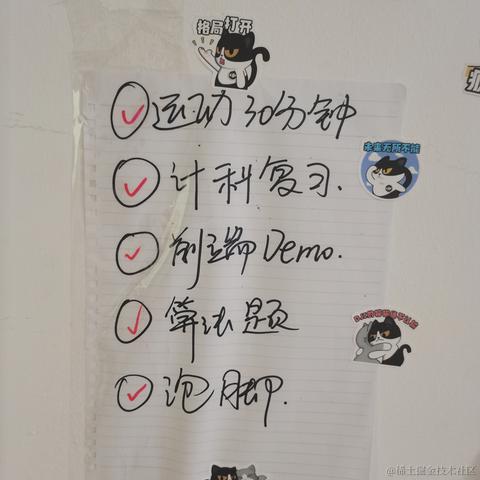 格局打开
运动30分钟
计科复习.
未来无所不能
前端Demo.
算法题
泡脚.
@稀土掘金技术社区